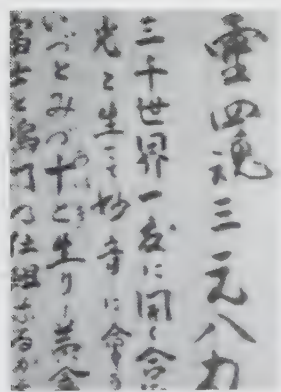 靈四魂三元八力
三千世界一度に開く
光と生して妙音に會ふ
いづとみづ十と生り黄金
富士と鳴門の仕組